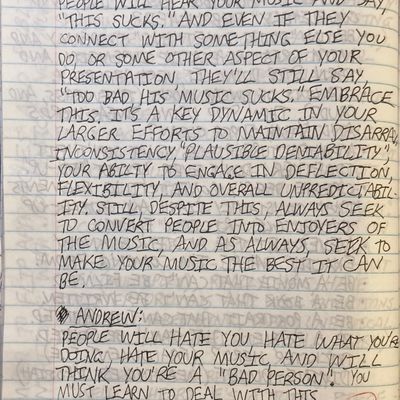 PEOPLE WILL HEAR YOUR MUSIC AND SAY,
"THIS SUCKS." AND EVEN IF THEY
CONNECT WITH SOMETHING ELSE YOU
DO, OR SOME OTHER ASPECT OF YOUR
PRESENTATION, THEY'LL STILL SAY,
"TOO BAD HIS MUSIC SUCKS." EMBRACE
THIS, IT'S A KEY DYNAMIC IN YOUR
LARGER EFFORTS TO MAINTAIN DISARRAY,
INCONSISTENCY, "PLAUSIBLE DENIABILITY",
YOUR ABILTY TO ENGAGE IN DEFLECTION,
FLEXIBILITY, AND OVERALL UNPREDICTABIL-
ITY. STILL, DESPITE THIS, ALWAYS SEEK
TO CONVERT PEOPLE INTO ENJOYERS OF
THE MUSIC, AND AS ALWAYS, SEEK TO
MAKE YOUR MUSIC THE BEST IT CAN
BE.
ANDREW:
PEOPLE WILL HATE YOU, HATE WHAT YOU'RE
DOING, HATE YOUR MUSIC, AND WILL
THINK YOU'RE A "BAD PERSON". YOU
MUST LEARN TO DEAL WITH THIS